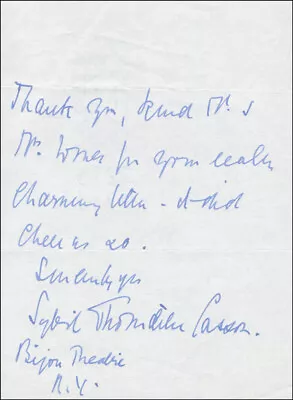 Thank you, kind Mr. &
Mrs. for your really
Charming letter - it did
Cheer us so.
Sincerely yrs
Sybil Thorndike Casson.
Bijou Theatre
N.Y.